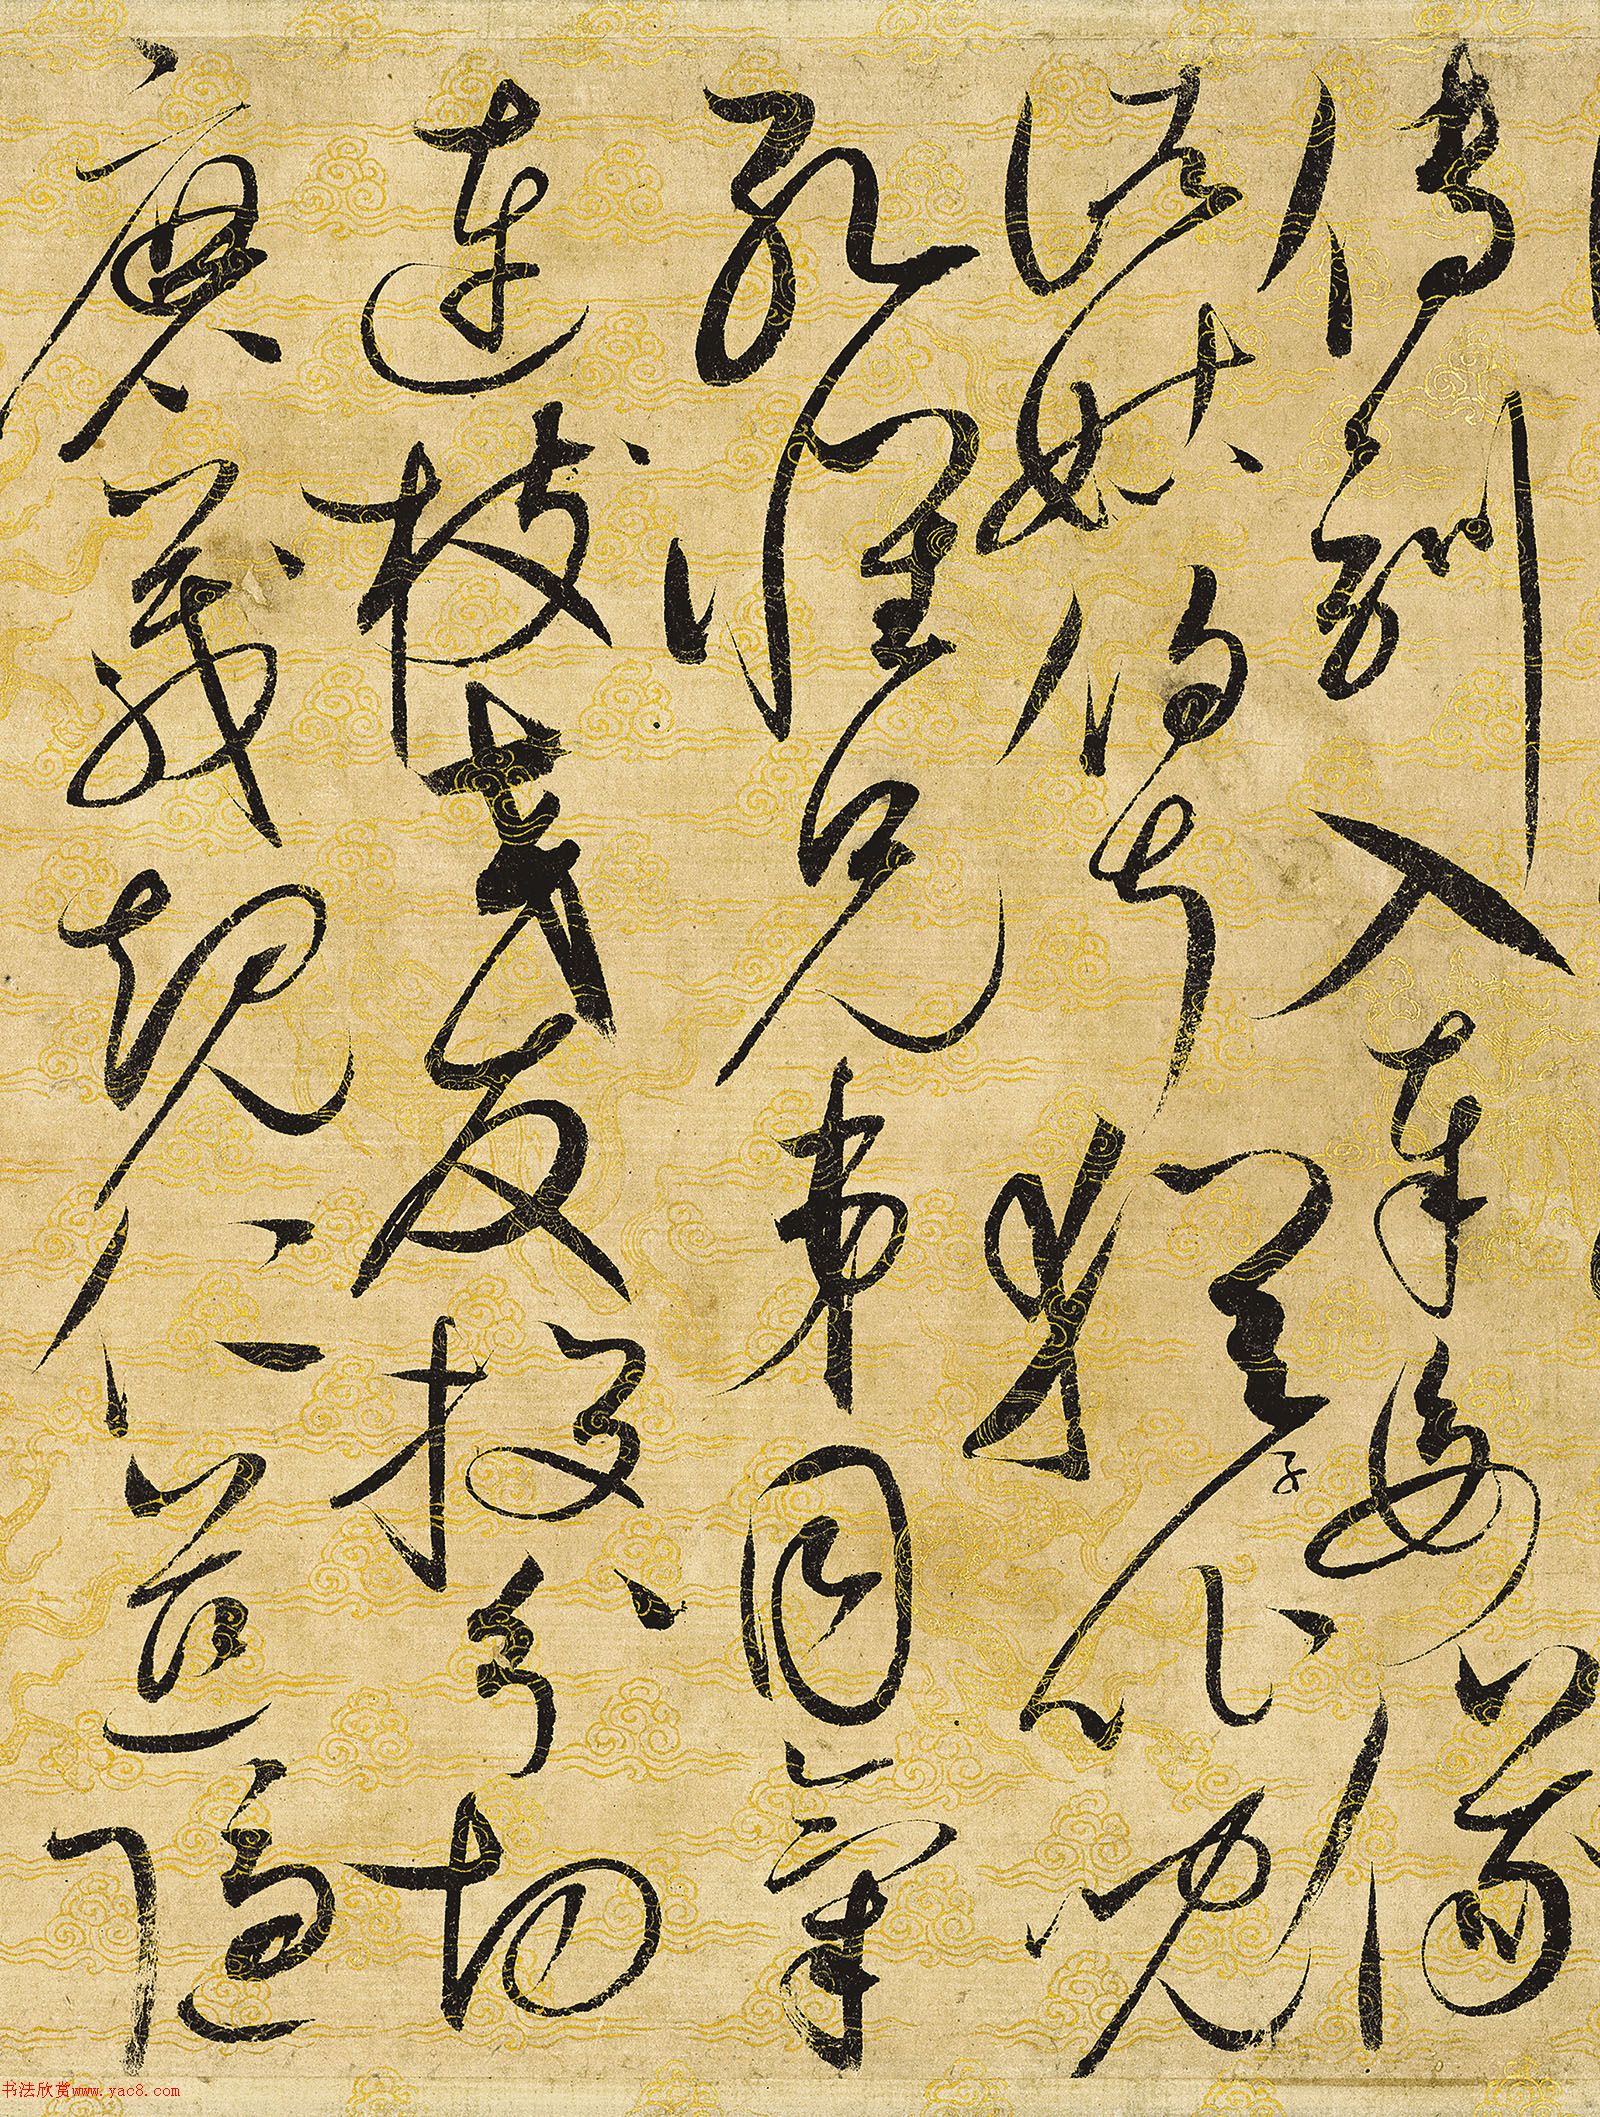 傅訓入奉母儀
諸姑伯叔猶子比兒
孔懷兄弟同氣
連枝交友投分切
磨箴規仁慈隱
书法欣赏www.yac8.com